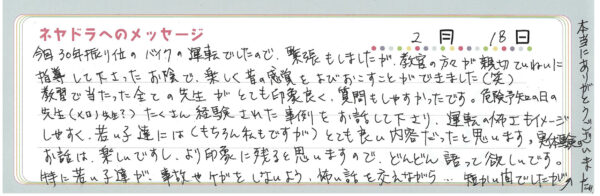 ネヤドラへのメッセージ
2月18日
今回30年振り位のバイクの運転でしたので、緊張もしましたが、教官の方々が親切でいねいに
指導して下さったお陰で、楽しく昔の感覚をよびおこすことができました(笑)
教習で当たった全ての先生がとても印象良く、質問もしやすかったです。危険予知の日の
先生(メロリ先?)たくさん経験された事例をお話して下さり、運転の仕方もイメージ
しやすく、若い子達には(もちろん私もですが)とても良い内容だったと思います。実体験の
お話は、楽しいですし、より印象に残ると思いますので、どんどん語って欲しいです。
特に若い子達が、事故やケガをしないよう、怖い話を交えながら… 短かい間でしたが
本当にありがとうございました